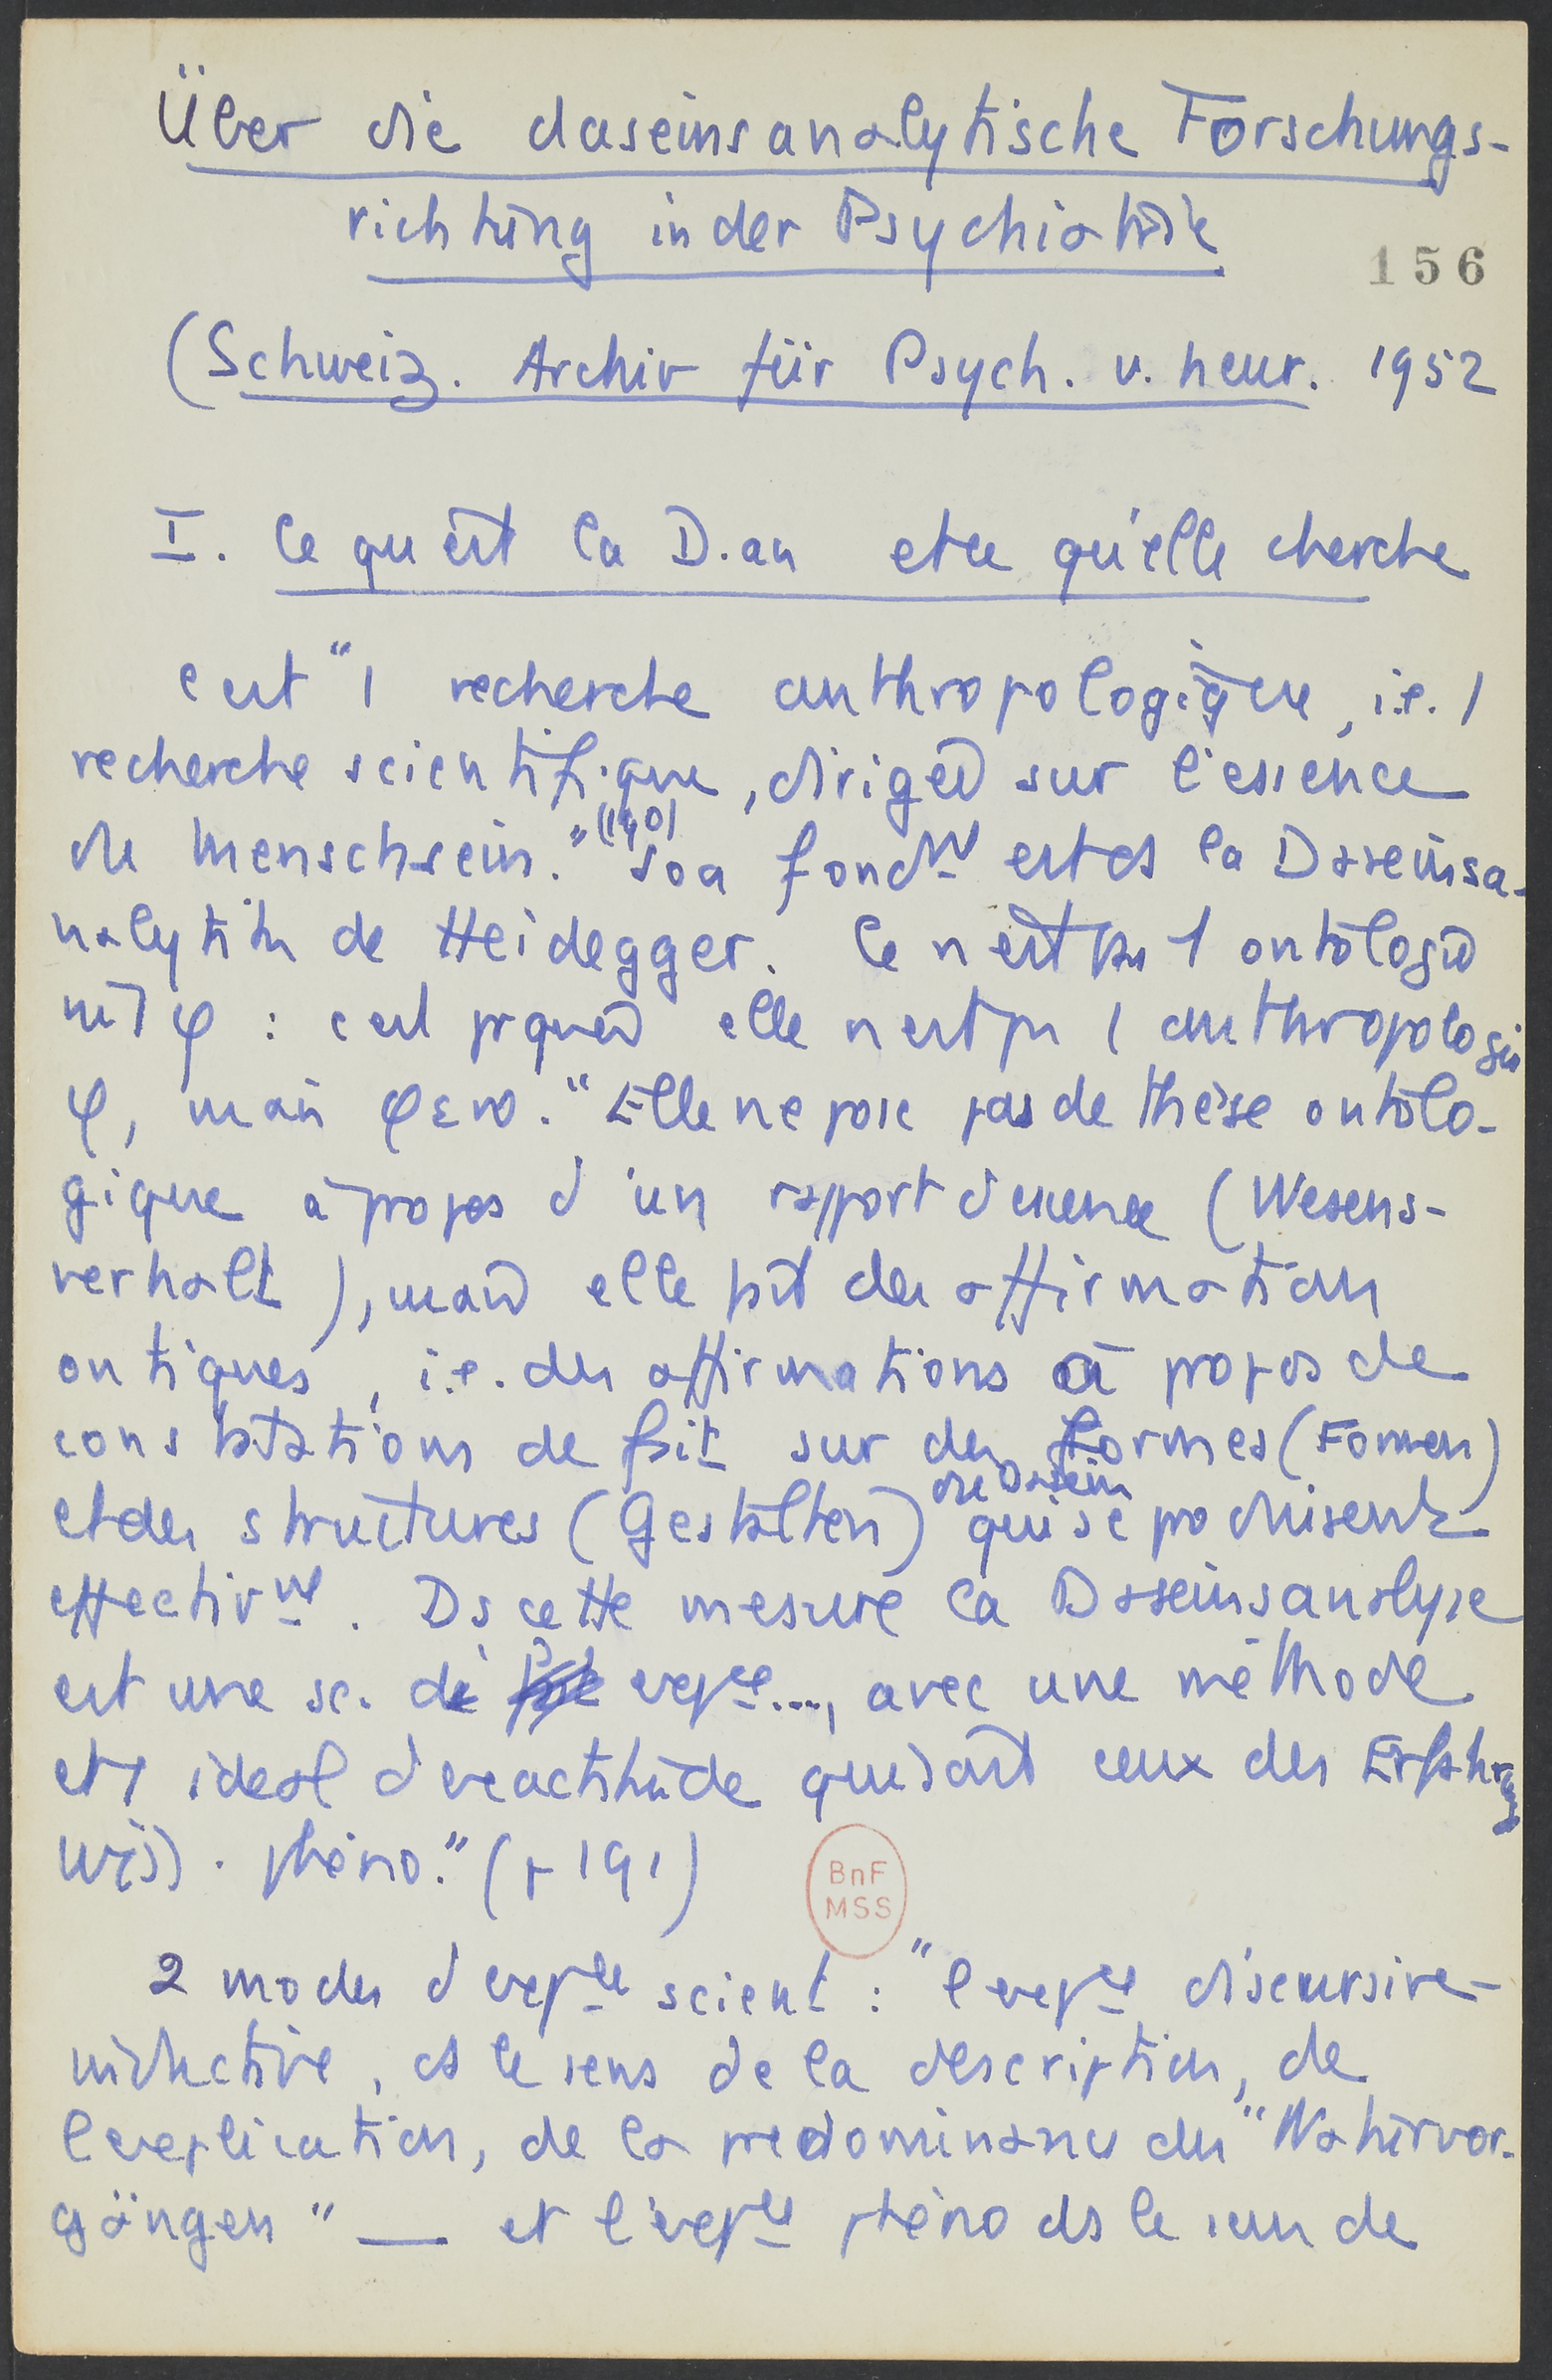 Über die daseinsanalytische Forschungs-
richtung in der Psychiatrie
156
(Schweiz. Archiv für Psych. u. neur. 1952
I. Ce qu'est la D.an et ce qu'elle cherche
c'est "1 recherche anthropologique, i.e. 1
recherche scientifique, dirigée sur l'essence
du Menschsein." (190) Son fondnt est ds la Daseinsa-
nalytik de Heidegger. Ce n'est pas 1 ontologie
ni 1 φ : c'est pquoi elle n'est pas 1 anthropologie
φ, mais φεno. "Elle ne pose pas de thèse ontolo-
gique à propos d'un rapport d'essence (Wesens-
verhalt), mais elle fait des affirmations
ontiques, i.e. des affirmations à propos de
constatations de fait sur des formes (Formen)
et des structures (Gestalten) du Dasein qui se produisent
effectivnt. Ds cette mesure la Daseinsanalyse
est une sc. de expce..., avec une méthode
et 1 idéal d'exactitude qui sont ceux des Erfahrungs
wiss. phéno." (p 191)
2 modes d'expce scient : "l'expce discursive-
inductive, ds le sens de la description, de
l'explication, de la prédominance des "Naturvor-
gängen" — et l'expce phéno ds le sens de
BnF
MSS